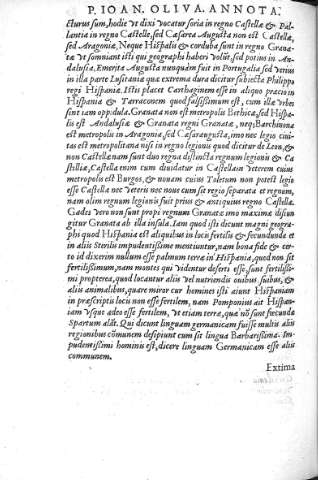 P. IOAN. OLIVA. ANNOTA.
cturus sum, hodie ut dixi vocatur soria in regno Castellæ & Pal-
lantia in regno Castelle, sed Cæsarea Augusta non est Castellæ,
sed Aragoniæ, Neque Hispalis & corduba sunt in regno Grana-
tæ ut somniant isti qui geographi haberi volũt, sed potius in An-
dalusia, Emerita Augusta nunquam fuit in Portugalia sed verius
in illa parte Lusitaniæ quæ extrema dura dicitur subiecta Philippo
regi Hispaniæ. Isti placet Carthaginem esse in aliquo præcio in
Hispania & Tarraconem quod falsissimum est, cum illæ urbes
sint iam oppidula, Granata non est metropolis Bethica, sed Hispa
lis est Andalusiæ & Granata regni Granatæ, neq; Barchinona
est metropolis in Aragonia, sed Cæsaraugusta, imo nec legio civi-
tas est metropolitana nisi in regno legionis quod dicitur de Leon, &
non Castellæ nam sunt duo regna distincta regnum legionis & Ca
stilliæ, Castella enim cum dividatur in Castellam veterem cuius
metropolis est Burgos, & nouam cuius Toletum non potest legio
esse Castella nec veteris nec nouæ cum sit regio separata et regnum,
nam olim regnum legionis fuit prius & antiquius regno Castellæ.
Gades vero non sunt propè regnum Granatæ imo maxima disiun
gitur Granata ab illa insula. Iam quod isti dicunt magni geogra-
phi quod Hispania est in aliquibus in locis fertilis & fæcunda & et
in aliis Sterilis impudentissimè mentiuntur, nam bona fide & cer-
to id dixerim nullum esse palmum terræ in Hispania, quod non sit
fertilissimum, nam montes qui videntur deserti esse, sunt fertilissi-
mi propterea, quod locantur aliis vel nutriendis ovibus suibus, &
aliis animalibus, quare miror cur homines isti aiunt Hispaniam
in præscriptis locis non esse fertilem, nam Pomponius ait Hispa-
niam usque adeo esse fertilem, ut etiam terræ, quæ nõ sunt fæcundæ
Spartum alãt. Qui dicunt linguam germanicam fuisse multis aliis
regionibus cõmunem desipiunt cum sit lingua Barbarissima. Im-
pudentissimi hominis est, dicere linguam Germanicam esse aliis
communem.
Extima